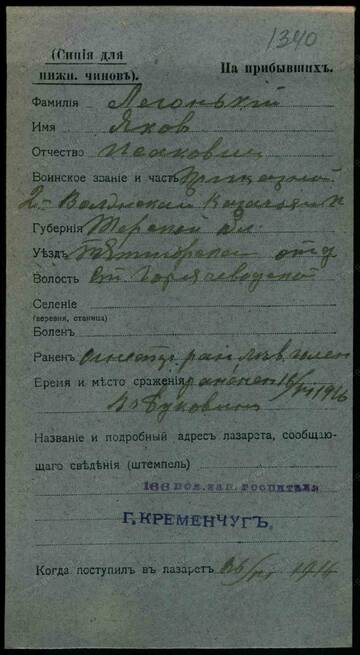 1340
(Синія для
нижн. чиновъ).
На прибывшихъ.
Фамилія Легонький
Имя Яков
Отчество Исакович
Воинское званіе и часть Приказной
2- Волжский Казачий п
Губернія Терской Обл
Уѣздъ Пятигорскій отд
Волость Ст Горячеводской
Селеніе
(деревня, станица)
Боленъ
Раненъ Огнестр ран лѣв голен
Время и мѣсто сраженія ранен 16/VI 1916
в Буковин
Названіе и подробный адресъ лазарета, сообщаю-
щаго свѣдѣнія (штемпель)
166 пол. зап. госпиталя
Г. КРЕМЕНЧУГЪ.
Когда поступилъ въ лазаретъ 26/VI 1916